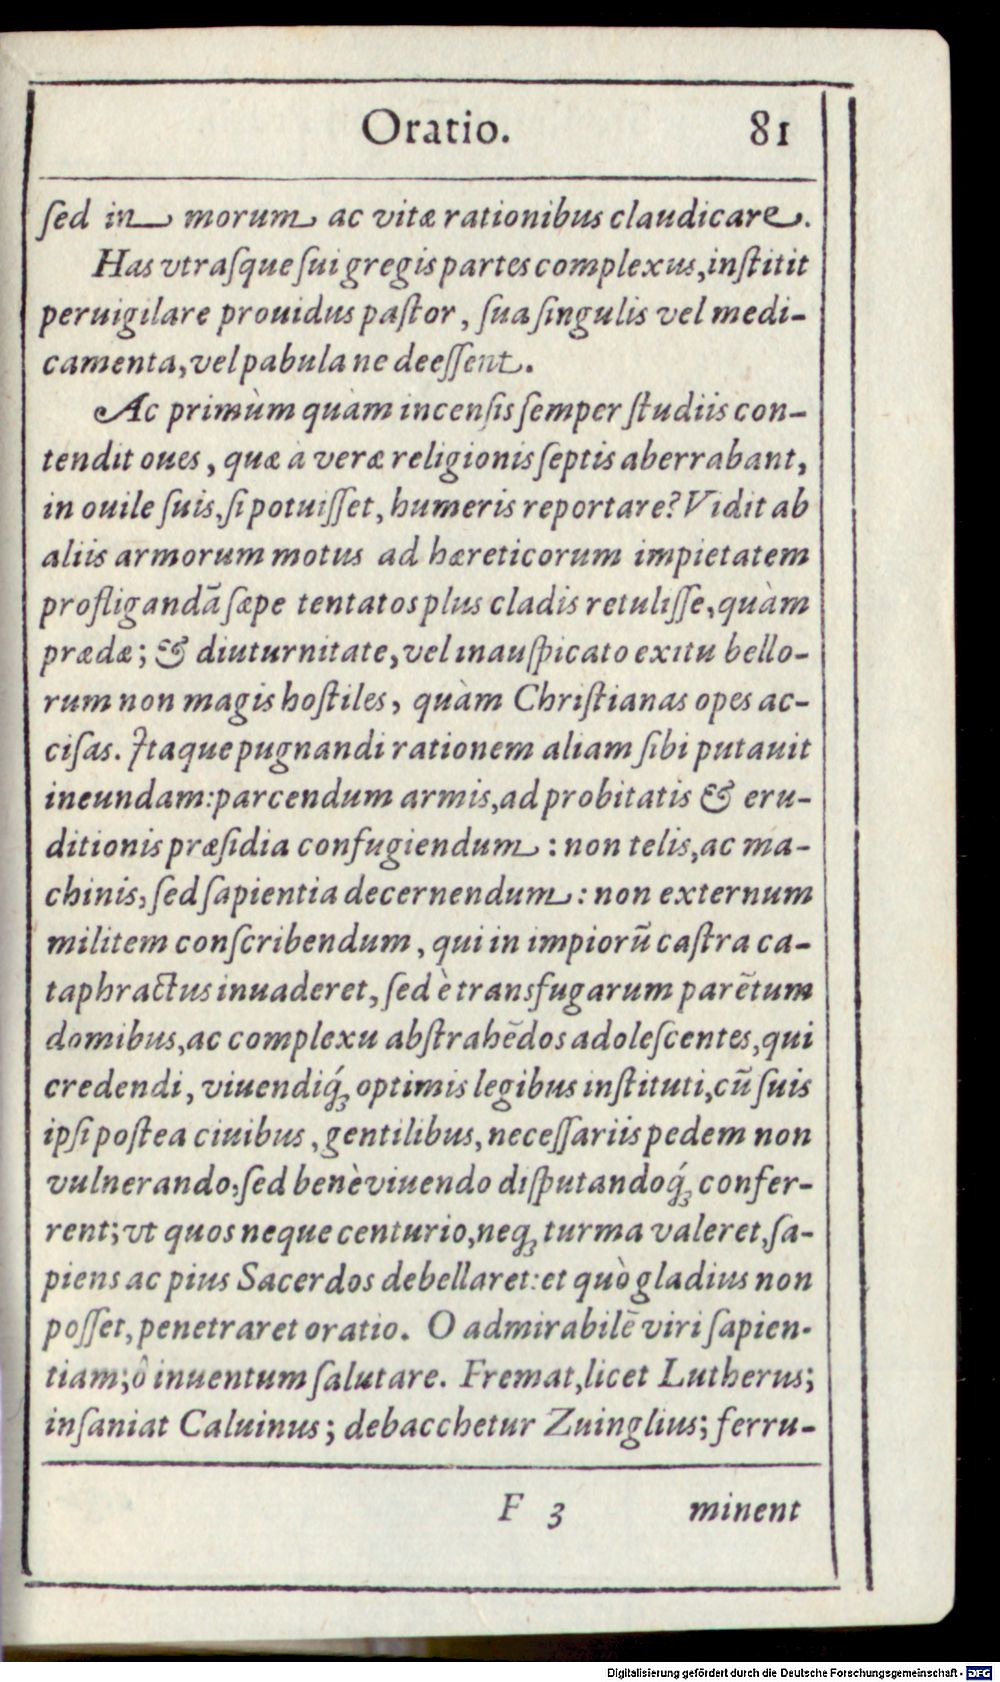 Oratio. 81
ſed in morum ac vitæ rationibus claudicare.
Has vtraſque ſui gregis partes complexus, inſtitit
peruigilare prouidus paſtor, ſua ſingulis vel medi-
camenta, vel pabula ne deeſſent.
Ac primùm quàm incenſis ſemper ſtudiis con-
tendit oues, quæ à veræ religionis ſeptis aberrabant,
in ouile ſuis, ſi potuiſſet, humeris reportare? Vidit ab
aliis armorum motus ad hæreticorum impietatem
profligandā ſæpe tentatos plus cladis retuliſſe, quàm
prædæ; & diuturnitate, vel inauſpicato exitu bello-
rum non magis hoſtiles, quàm Chriſtianas opes ac-
ciſas. Itaque pugnandi rationem aliam ſibi putauit
ineundam: parcendum armis, ad probitatis & eru-
ditionis præſidia confugiendum: non telis, ac ma-
chinis, ſed ſapientia decernendum: non externum
militem conſcribendum, qui in impiorū caſtra ca-
taphractus inuaderet, ſed è transfugarum parētum
domibus, ac complexu abſtrahēdos adoleſcentes, qui
credendi, viuendiq́ꝫ optimis legibus inſtituti, cū ſuis
ipſi poſtea ciuibus, gentilibus, neceſſariis pedem non
vulnerando, ſed benè viuendo diſputandoq́ꝫ confer-
rent; vt quos neque centurio, neqꝫ turma valeret, ſa-
piens ac pius Sacerdos debellaret: et quò gladius non
poſſet, penetraret oratio. O admirabilē viri ſapien-
tiam; ô inuentum ſalutare. Fremat, licet Lutherus;
inſaniat Caluinus; debacchetur Zuinglius; ferru-
F 3 minent
Digitalisierung gefördert durch die Deutsche Forschungsgemeinschaft - DFG